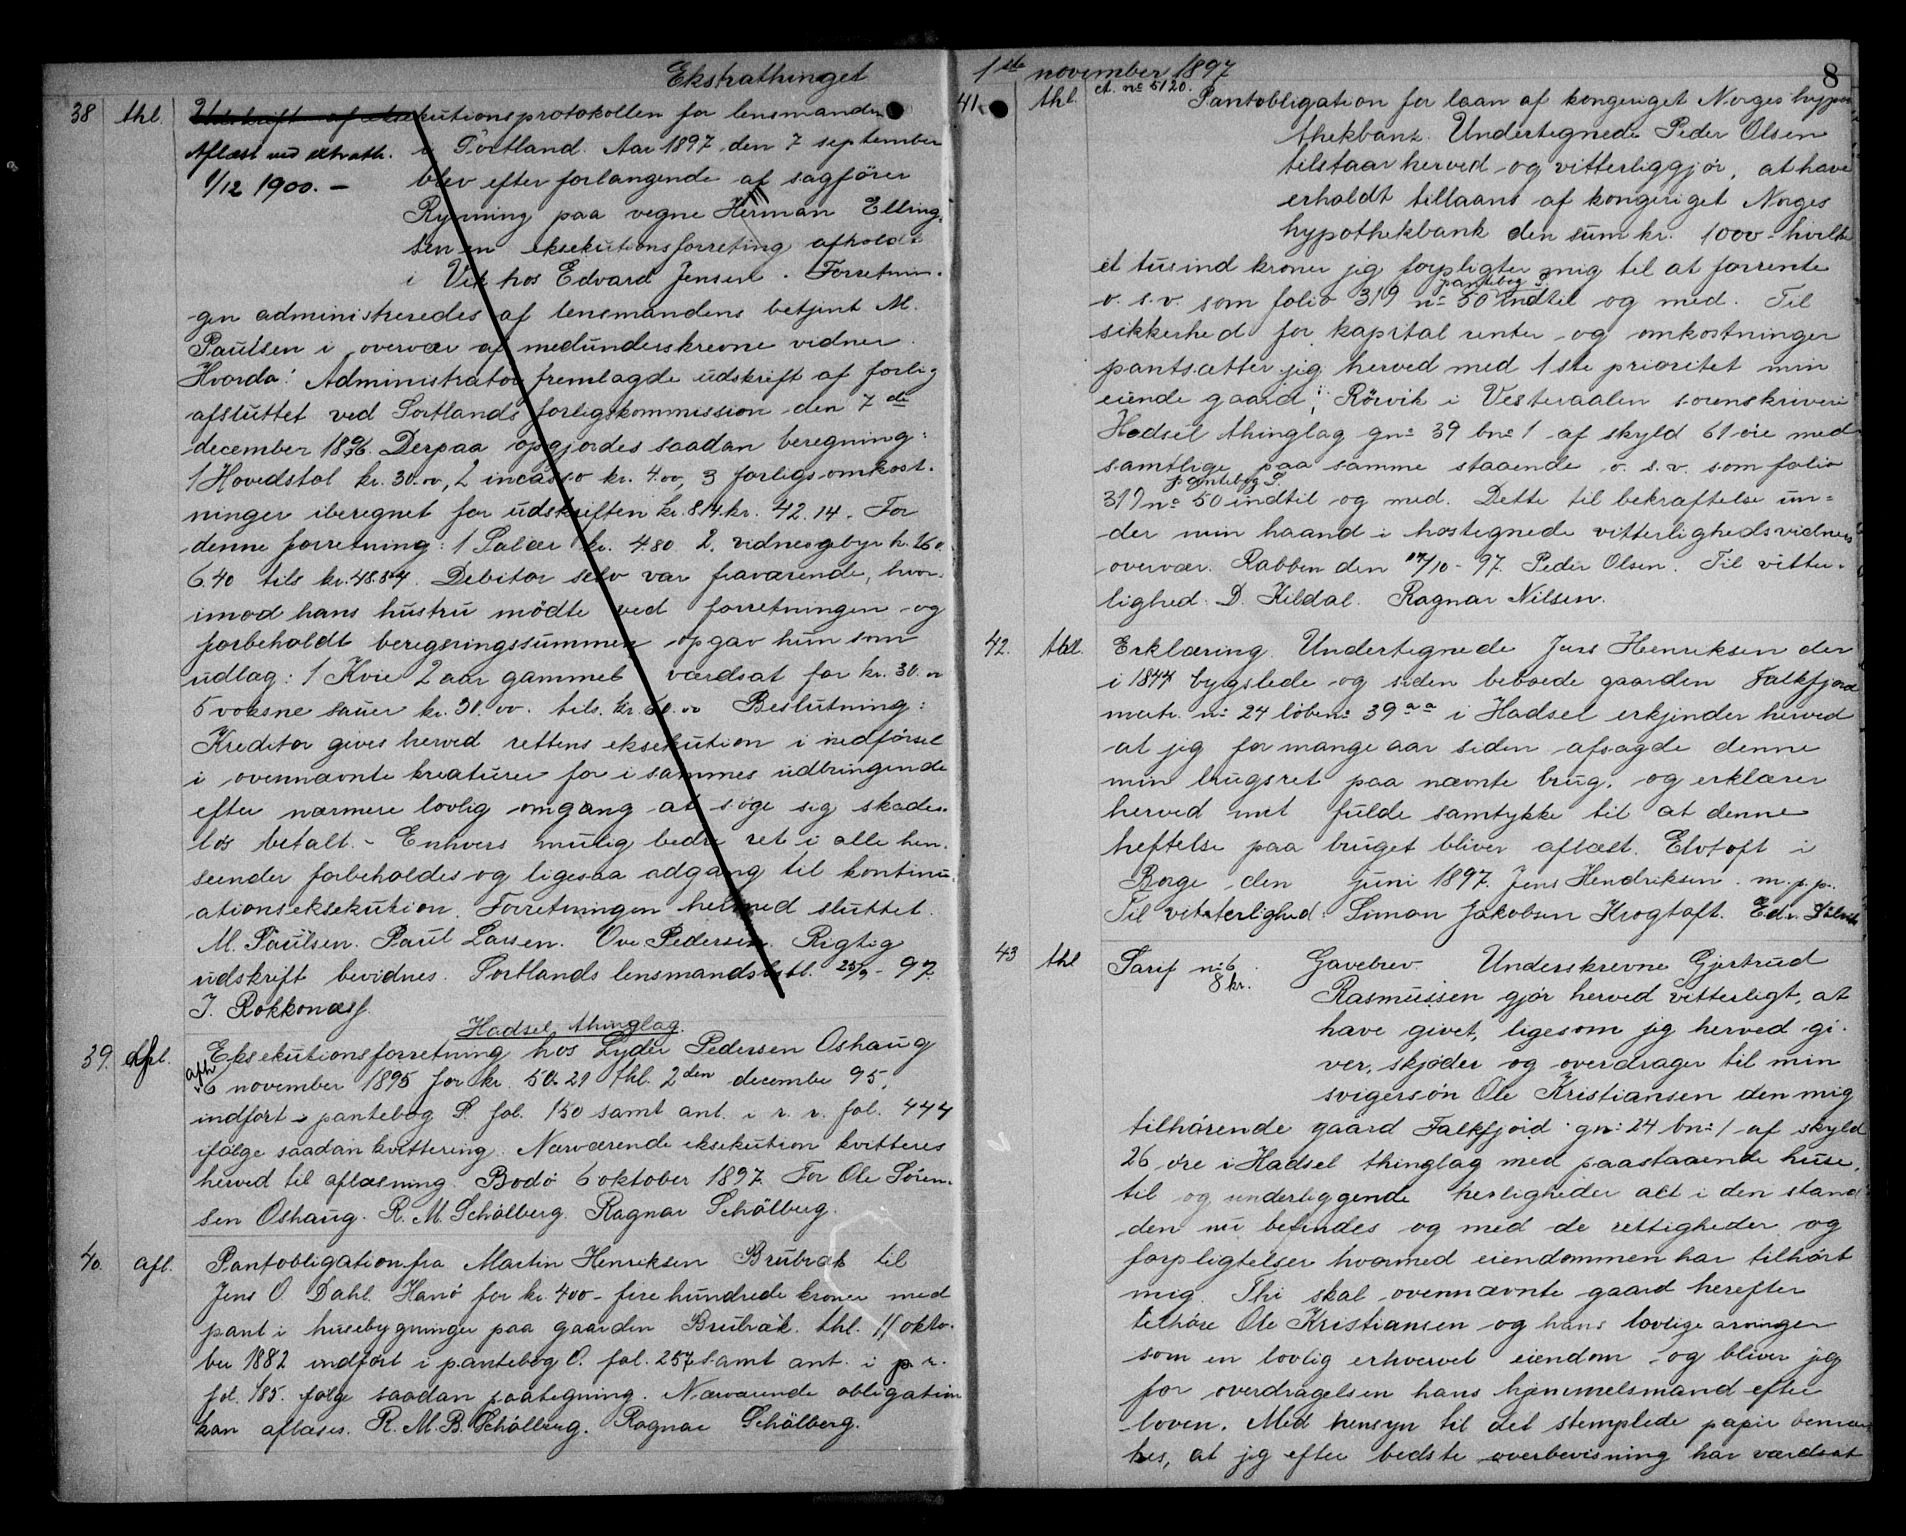 Ekstrathinget
38 thl. Udskrift af eksekutionsprotokollen for lensmanden
Aflæst ved ekstrath. i Sortland. Aar 1897 den 7 september
1/12 1900. – blev efter forlangende af sagfører
Rynning paa vegne Herman Elling-
sen en eksekutionsforreting afholdt
i Vik hos Edvard Jensen. Forretnin-
gen administreredes af lensmandens betjent M.
Paulsen i overvær af medunderskrevne vidner
Hvorda! Administrator fremlagde udskrift af forlig
afsluttet ved Sortlands forligskommission den 7de
december 1896. Derpaa opgjordes saadan beregning:
1 Hovedstol kr. 30.00, 2 incasso kr. 4.00, 3 forligsomkost-
ninger iberegnet for udskriften kr. 8.14 kr. 42.14. For
denne forretning: 1 Salær kr. 4.80 2. vidnesgebyr kr. 1.60
6.40 tils kr. 48.54. Debitor selv var fraværende, hvor-
imod hans hustru mödte ved forretningen og
forbeholdt beregningssummen opgav hun som
udlag: 1 Kvie 2 aar gammel værdsat for kr. 30.00
5 voksne sauer kr. 30.00. tils. kr. 60.00 Beslutning:
Kreditor gives herved rettens eksekution i indførsel
i ovennævnte kreaturer for i sammes udbringende
efter nærmere lovlig omgang at søge sig skades-
løs betalt. – Enhvers mulig bedre ret i alle hen-
seender forbeholdes og ligesaa adgang til kontinu-
ationseksekution. Forretningen hermed sluttet.
M. Paulsen. Paul Larsen. Ove Pedersen. Rigtig
udskrift bevidnes. Sortlands lensmandsbstl. 25/9 – 97
J. Rokkonæs
Hadsel thinglag.
39. afl. Eksekutionsforretning hos Lyder Pedersen Oshaug
afh 6 november 1895 for kr. 50.21 thl. 2den december 95,
indført i pantebog S. fol. 150 samt ant. i r. r. fol. 444
ifølge saadan kvittering. Nærværende eksekution kvitteres
herved til aflæsning. Bodö 6 oktober 1897. For Ole Sören-
sen Oshaug. R. M. Schölberg. Ragnar Schölberg.
40. afl. Pantobligation fra Martin Henriksen Brubrak til
Jens O. Dahl. Hanö for kr. 400 – fire hundrede kroner med
pant i husebygninger paa gaarden Brubrak. thl. 11 okto-
ber 1882 indført i pantebog O. fol. 257 samt ant. i p. r.
fol. 185. følge saadan paategning. Nærværende obligation
kan aflæses. R. M. B. Schölberg. Ragnar Schölberg.
1ste november 1897
8
41. thl. ct. no 5120. Pantobligation for laan af kongeriget Norges hypo-
thekbank. Undertegnede Peder Olsen
tilstaar herved og vitterliggjør, at have
erholdt tillaans af kongeriget Norges
hypothekbank den sum kr. 1000 – hvilke
et tusind kroner jeg forpligter mig til at forrente
o. s. v. som folio 319 no 50 pantebog S. indtil og med. Til
sikkerhed for kapital renter og omkostninger
pantsætter jeg herved med 1ste prioritet min
eiende gaard i Rörvik i Vesteraalen sorenskriveri
Hadsel thinglag gno 39 bno 1 af skyld 61 øre med
samtlige paa samme staaende o. s. v. som folio
319 no 50 pantebog S. indtil og med. Dette til bekræftelse un-
der min haand i hostegnede vitterlighedsvidners
overvær. Rabben den 14/10 – 97. Peder Olsen. Til vitter-
lighed. D. Kildal. Ragnar Nilsen.
42. thl. Erklæring. Undertegnede Jens Henriksen der
i 1844 bygslede og siden beboede gaarden Falkfjord
matr. no 24 løbeno 39aa i Hadsel erkjender herved
at jeg for mange aar siden afsagde denne
min brugsret paa nævnte brug, og erklærer
herved mit fulde samtykke til at denne
heftelse paa bruget bliver aflæst. Elvtoft i
Borge den juni 1897. Jens Hendriksen. m. p. p.
Til vitterlighed: Simon Jakobsen Krogtoft. Edv.
43 thl Tarif no 6 8 kr. Gavebrev. Underskrevne Gjertrud
Rasmussen gjør herved vitterligt, at
have givet, ligesom jeg herved gi-
ver, skjøder og overdrager til min
svigersøn Ole Kristiansen den mig
tilhørende gaard Falkfjord gno 24 bno 1 af skyld
26 øre i Hadsel thinglag med paastaaende huse,
til og underliggende herligheder alt i den stand
den nu befindes og med de rettigheder og
forpligtelser hvormed eiendommen har tilhørt
mig. Thi skal ovennævnte gaard herefter
tilhøre Ole Kristiansen og hans lovlige arvinger
som en lovlig erhvervet eiendom og bliver jeg
for overdragelsen hans hjemmelsmand efter
loven. Med hensyn til det stemplede papir bemær-
kes, at jeg efter bedste overbevisning har værdsat